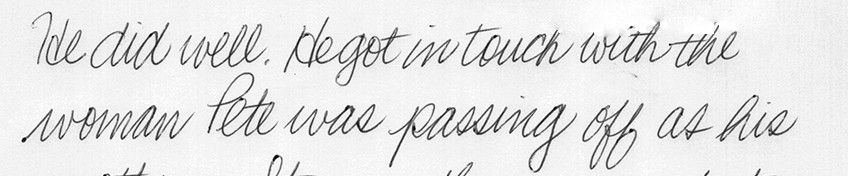 He did well. He got in touch with the
woman Pete was passing off as his